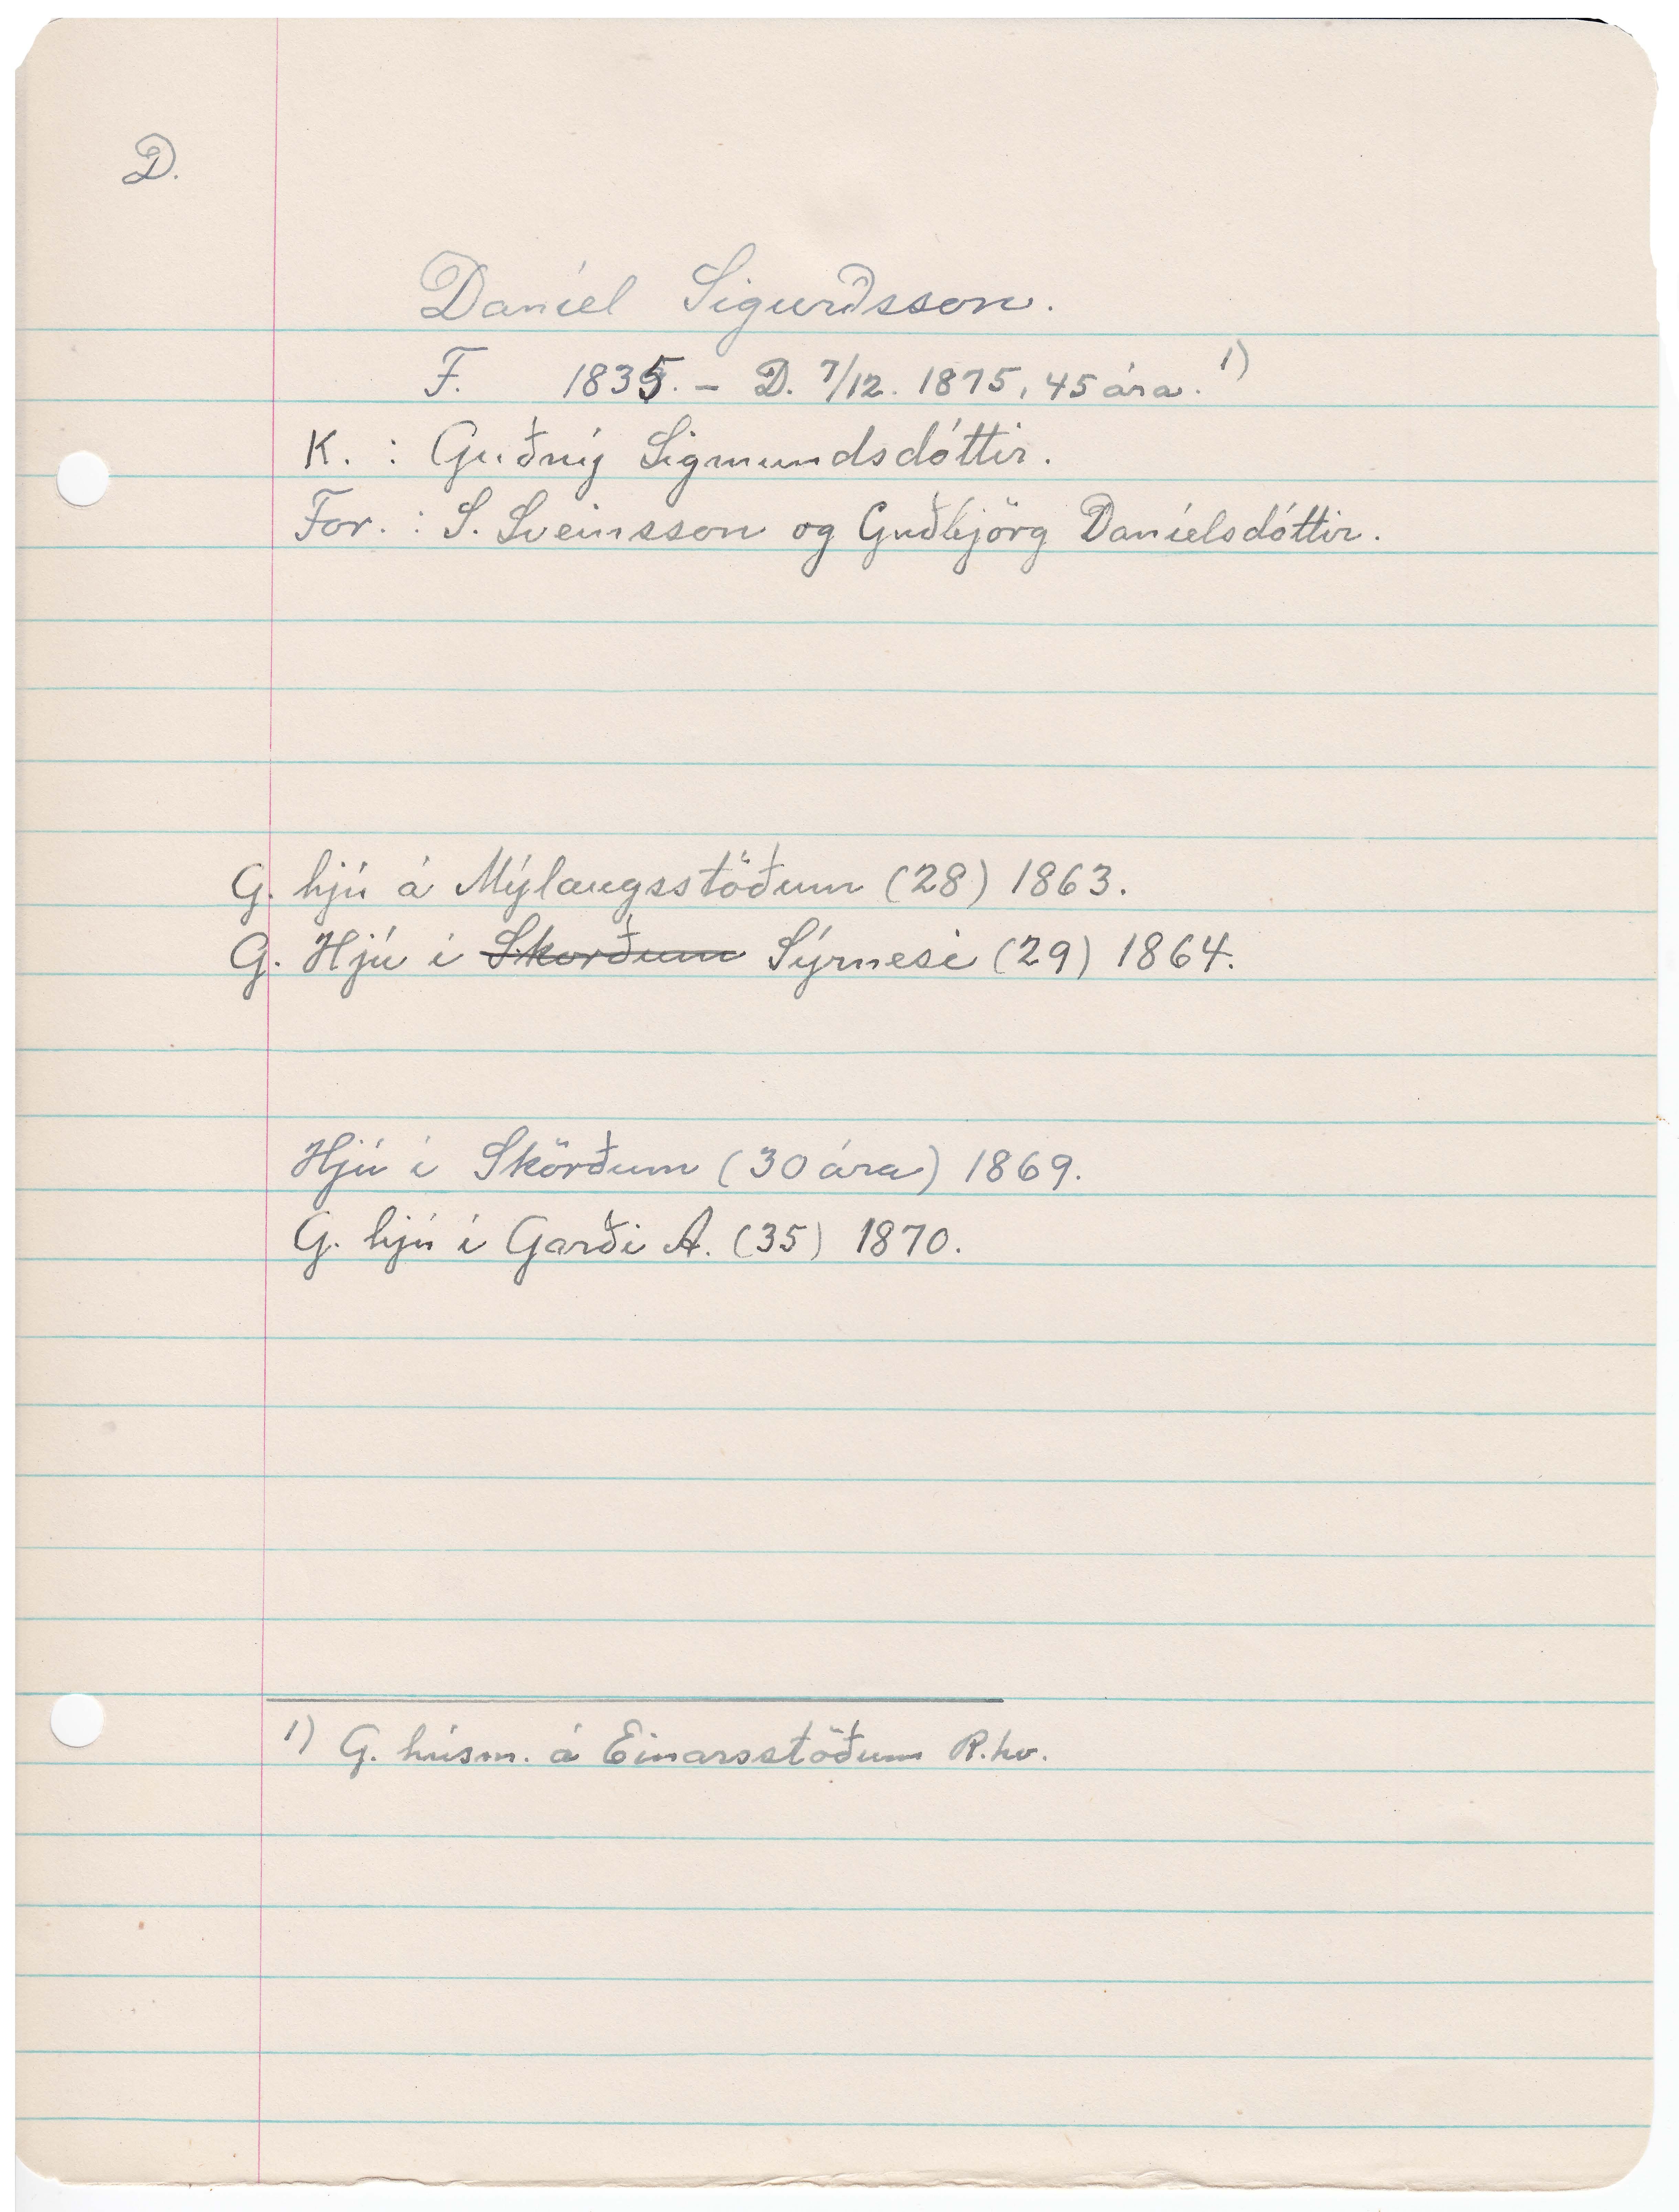 D.
Daníel Sigurðsson.
F. 1835. – D. 7/12. 1875, 45 ára. 1)
K. : Guðný Sigmundsdóttir.
For. : S. Sveinsson og Guðbjörg Daníelsdóttir.
G. hjú á Mýlaugsstöðum (28) 1863.
G. Hjú í Skorðum Sýrnesi (29) 1864.
Hjú í Skörðum (30 ára) 1869.
G. hjú í Garði A. (35) 1870.
1) G. húsm. á Einarsstöðum R.hv.